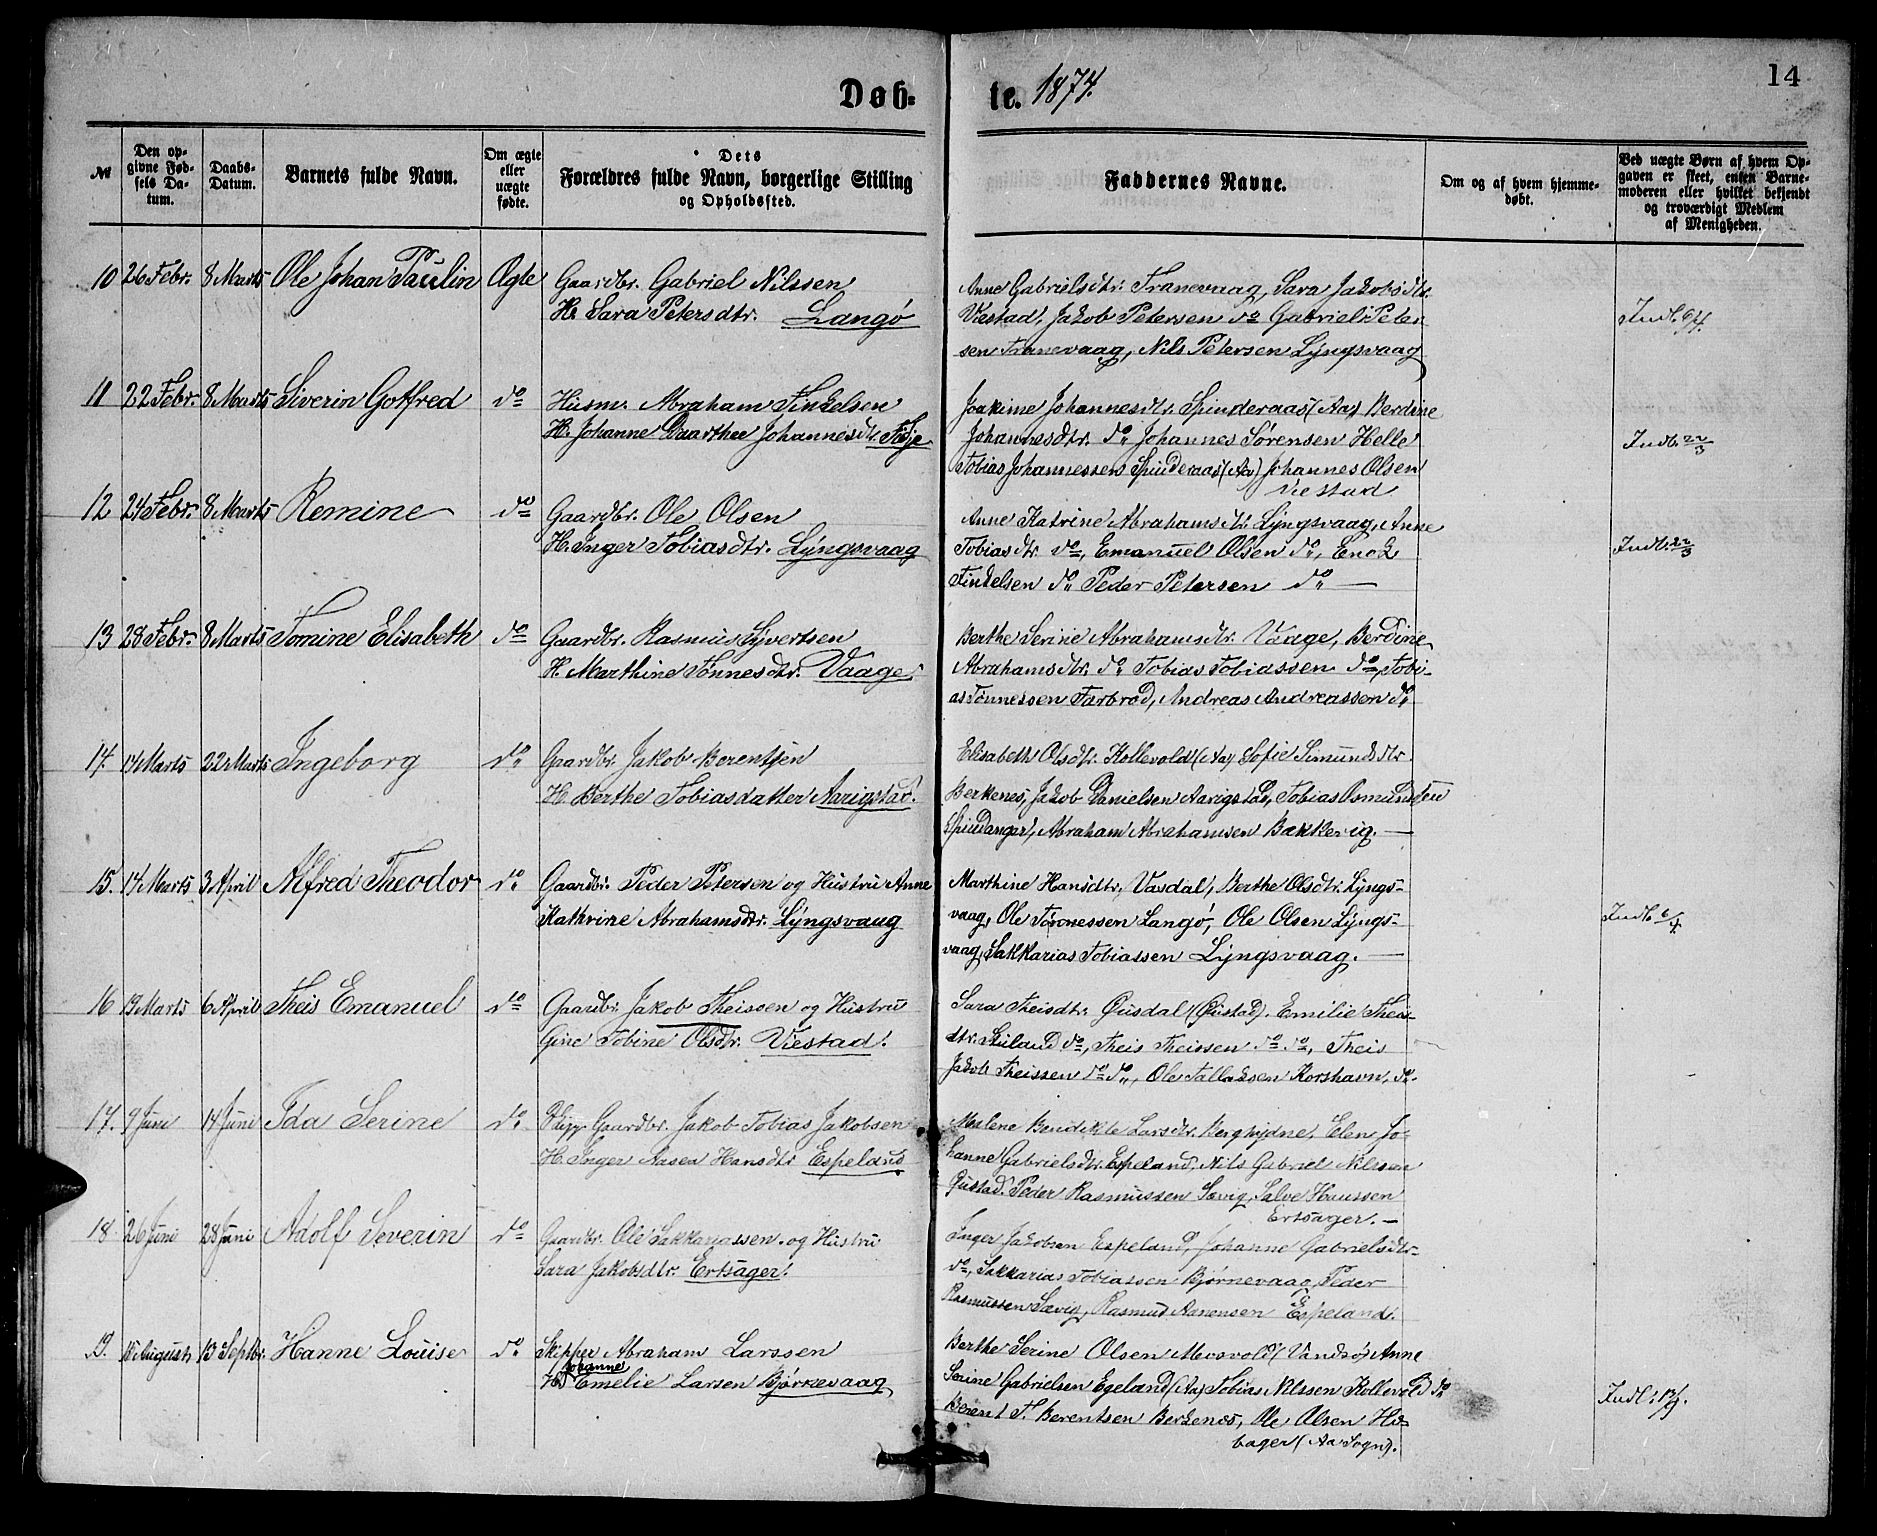 Døb-
te. 1874.
14
№
Den op-
givne Fød-
sels Da-
tum.
Daabs-
Datum.
Barnets fulde Navn.
Om ægte
eller
uægte
fødte.
Dets
Forældres fulde Navn, borgerlige Stilling
og Opholdssted.
Faddernes Navne.
Om og af hvem hjemme-
døbt.
Ved uægte Børn af hvem Op-
gaven er skeet, enten Barne-
moderen eller hvilket bekjendt
og troværdigt Medlem
af Menigheden.
10 26 Febr. 8 Marts Ole Johan Paulin Ægte Gaardbr. Gabriel Nilssen
H. Sara Petersdtr. Langø
Anne Gabrielsdtr. Tranevaag, Sara Jakobsdtr.
Viestad, Jakob Petersen do Gabriel Peter-
sen Tranevaag, Nils Petersen Lyngsvaag
Indl. 6/4.
11 22 Febr. 8 Marts Siverin Gotfred do Husm. Abraham Finkelsen
H. Johanne Daarthea Johannesdtr.
Joakime Johannesdtr. Spinderaas (Aa) Berdine
Johannesdtr. do Johannes Sørensen Helle
Tobias Johannessen Spinderaas (Aa) Johannes Olsen
Viestad
Indl. 22/3
12 24 Febr. 8 Marts Remine do Gaardbr. Ole Olsen
H. Inger Tobiasdtr. Lyngsvaag
Anne Katrine Abrahamsdtr. Lyngsvaag, Anne
Tobiasdtr. do, Emanuel Olsen do, Enok
Finkelsen do Peder Petersen do —
Indl. 22/3
13 28 Febr. 8 Marts Tomine Elisabeth do Gaardbr. Rasmus Syvertsen
H. Marthine Tønnesdtr. Vaage.
Berthe Serine Abrahamsdtr. Vaage, Berdine
Abrahamsdtr. do Tobias Tobiassen do, Tobi-
as Tønnessen Farbrød, Andreas Andreassen do
14. 14 Marts 22 Marts Ingeborg do Gaardbr. Jakob Berentsen
H. Berthe Tobiasdatter Aarigstad.
Elisabeth Olsdtr. Kollevold (Aa) Sofie Simundsdtr
Berkenes, Jakob Danielsen Aarigstad, Tobias Osmundsen
Spindanger, Abraham Abrahamsen Bakkevig. —
15. 14 Marts 3 April Alfred Theodor do Gaardbr. Peder Petersen og Hustru Anne
Kathrine Abrahamsdtr. Lyngsvaag
Marthine Hansdtr. Vasdal, Berthe Olsdtr. Lyngs-
vaag, Ole Tønnessen Langø, Ole Olsen Lyngs-
vaag, Sakkarias Tobiassen Lyngsvaag. —
Indl. 6/4
16 19 Marts 6 April Theis Emanuel do Gaardbr. Jakob Theissen og Hustru
Gine Tobine Olsdtr. Viestad.
Sara Theisdtr. Øusdal (Øustad). Emilie Theis-
dtr. do, Theis Theissen do do, Theis
Jakob Theissen do do, Ole Tallaksen Korshavn, do.
17. 9 Juni 14 Juni Ida Serine do Gaardbr. Jakob Tobias Jakobsen
H. Inger Aasen Hansdtr Espeland
Malene Bendikte Larsdtr. Berghydne, Elen Jo-
hanne Gabrielsdtr. Espeland, Nils Gabriel Nilssen
Øustad. Peder Rasmussen Sævig, Salve Hanssen
Ertsager. —
18. 26 Juni 28 Juni Adolf Severin do Gaardbr. Ole Sakkariassen og Hustru
Sara Jakobsdtr. Ertsager.
Inger Jakobsen Espeland, Johanne Gabrielsdtr.
do, Sakkarias Tobiassen Bjørnevaag, Peder
Rasmussen Sævig, Rasmus Aanensen Espeland.
19. 15 August 13 Septbr. Hanne Louise do Skipper Abraham Larssen
Johanne
H. Emelie Larsen Bjørnevaag
Berthe Serine Olsen Mosvold (Vandsø) Anne
Serine Gabrielsen Egeland (Aa) Tobias Nilssen Kollevold do
Berent T. Berentsen Berkenes, Ole Olsen
(Aa Sogn).
Indl. 13/9.